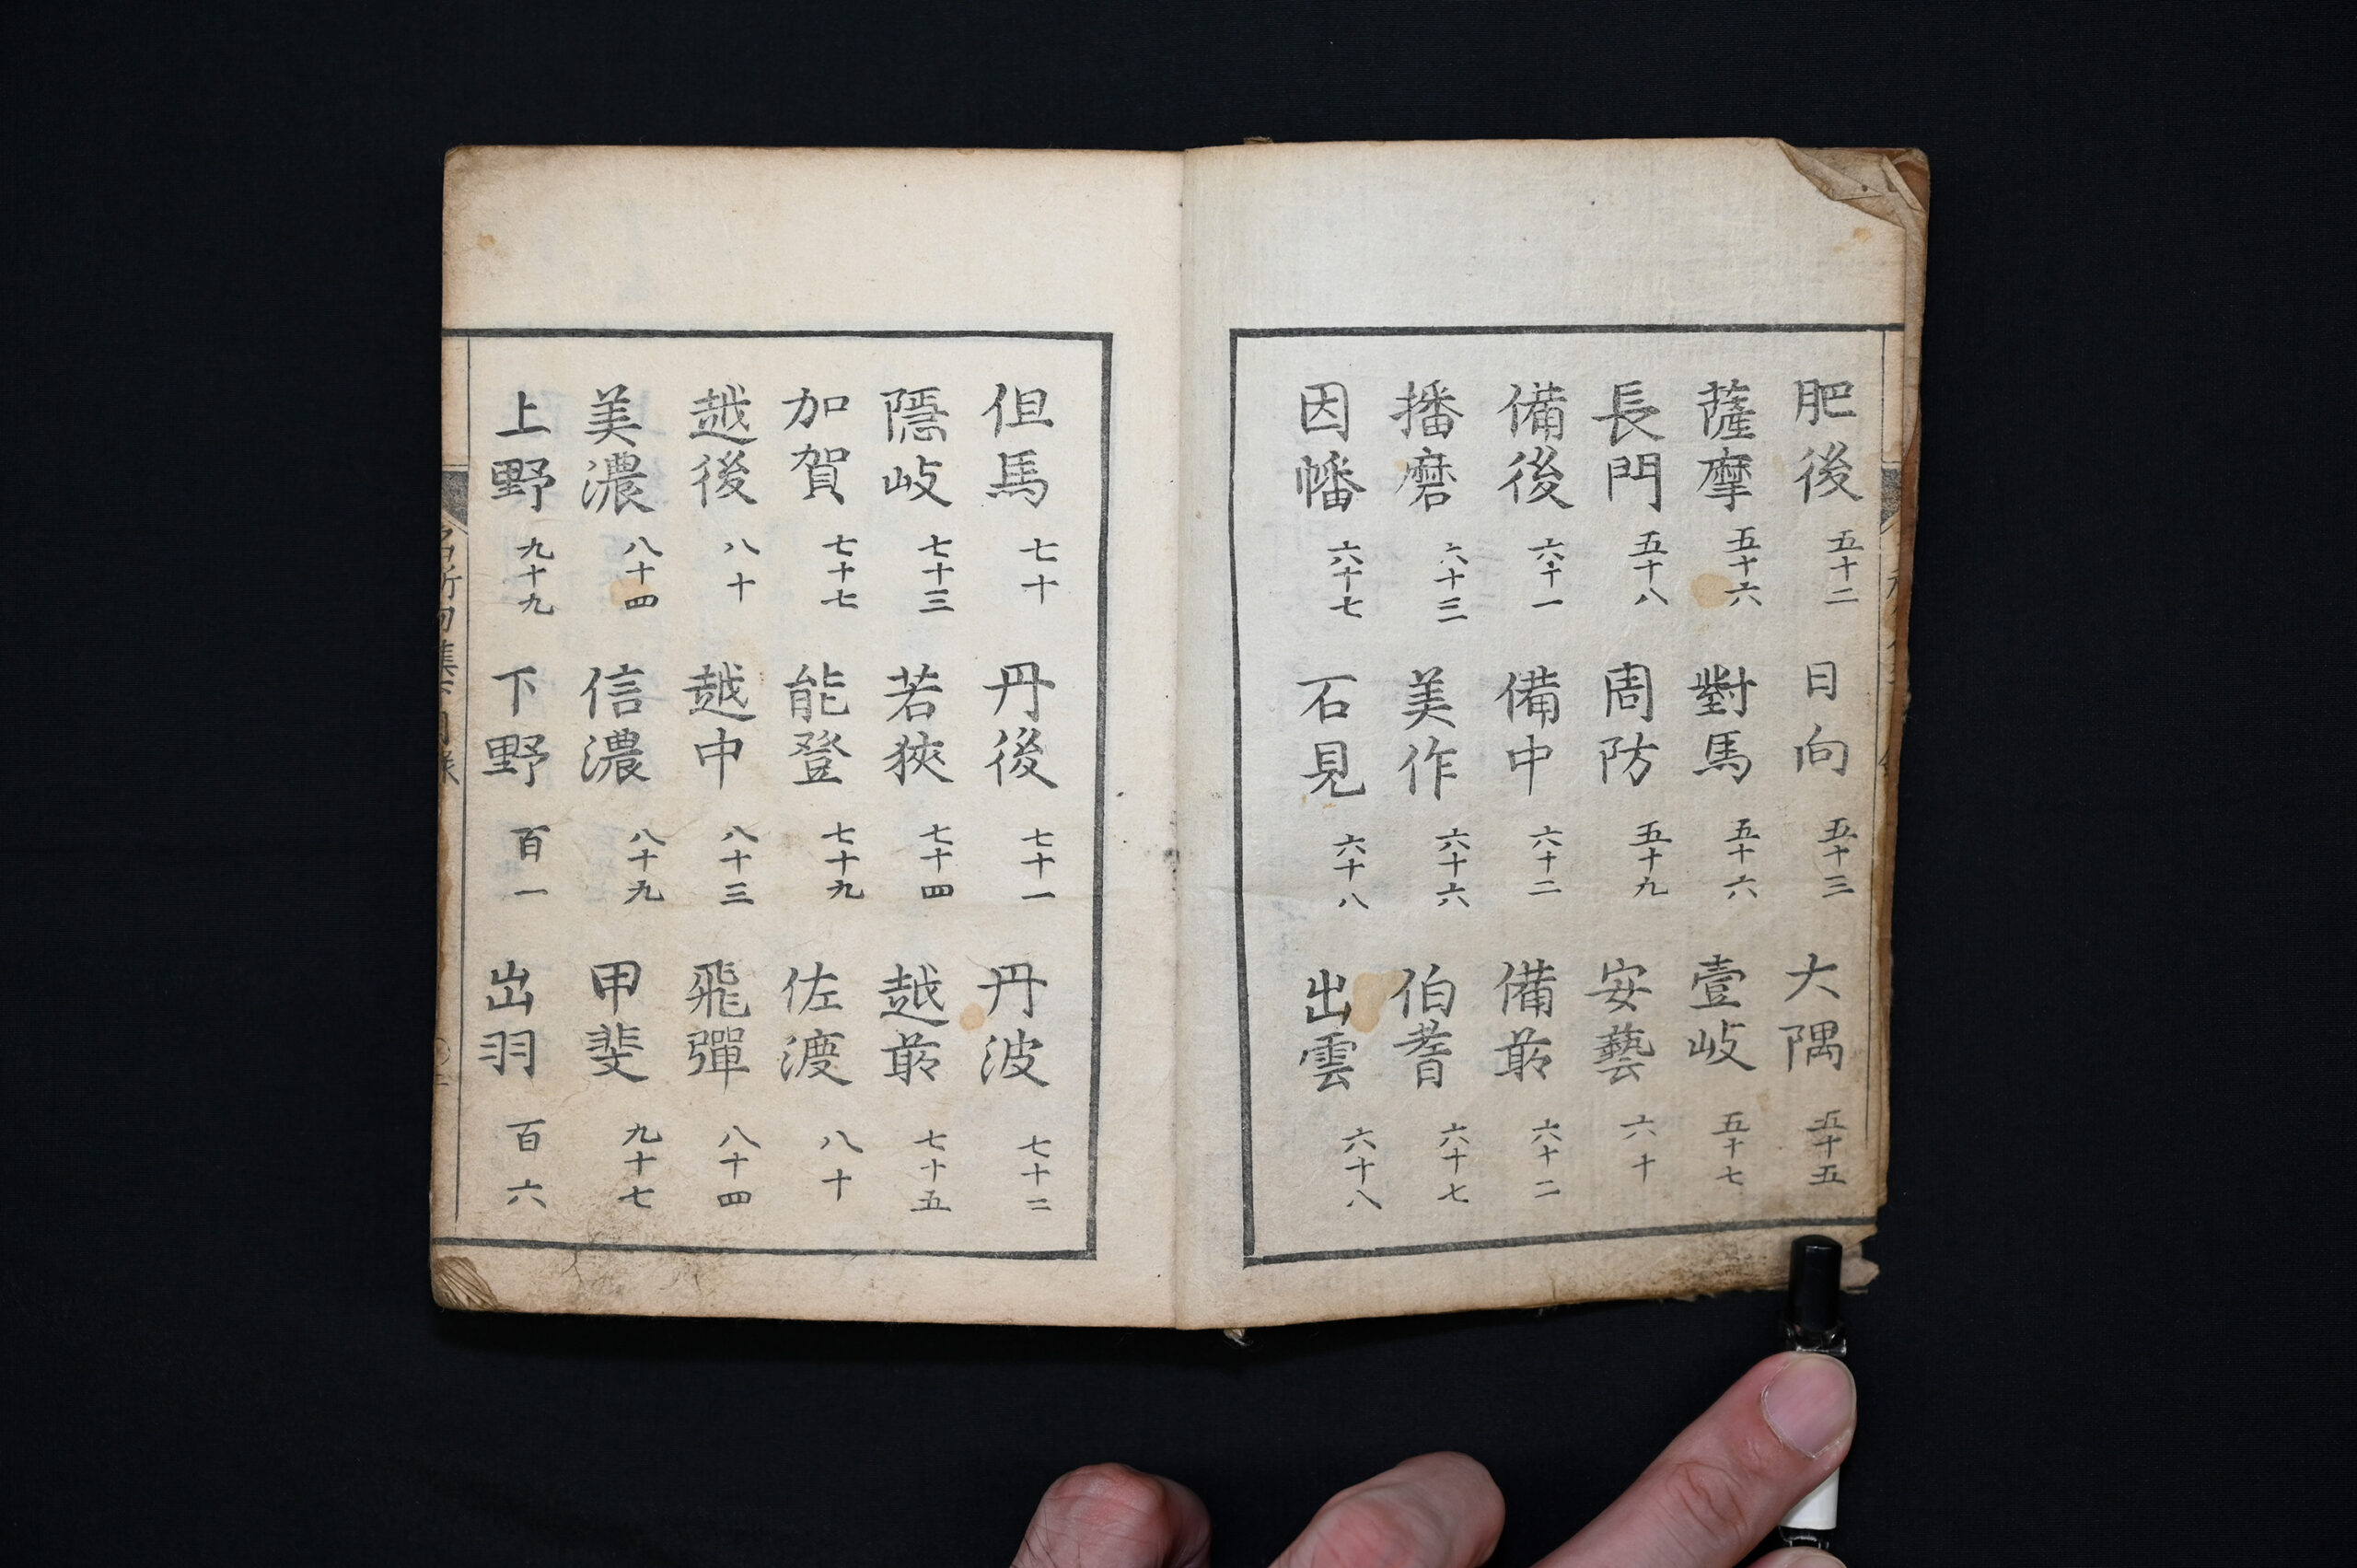 肥後 五十二 日向 五十三 大隅 五十五
薩摩 五十六 對馬 五十六 壹岐 五十七
長門 五十八 周防 五十九 安藝 六十
備後 六十一 備中 六十二 備前 六十二
播磨 六十三 美作 六十六 伯耆 六十七
因幡 六十七 石見 六十八 出雲 六十八
但馬 七十 丹後 七十一 丹波 七十二
隱岐 七十三 若狹 七十四 越前 七十五
加賀 七十七 能登 七十九 佐渡 八十
越後 八十 越中 八十三 飛彈 八十四
美濃 八十四 信濃 八十九 甲斐 九十七
上野 九十九 下野 百一 出羽 百六
名所句集下目録